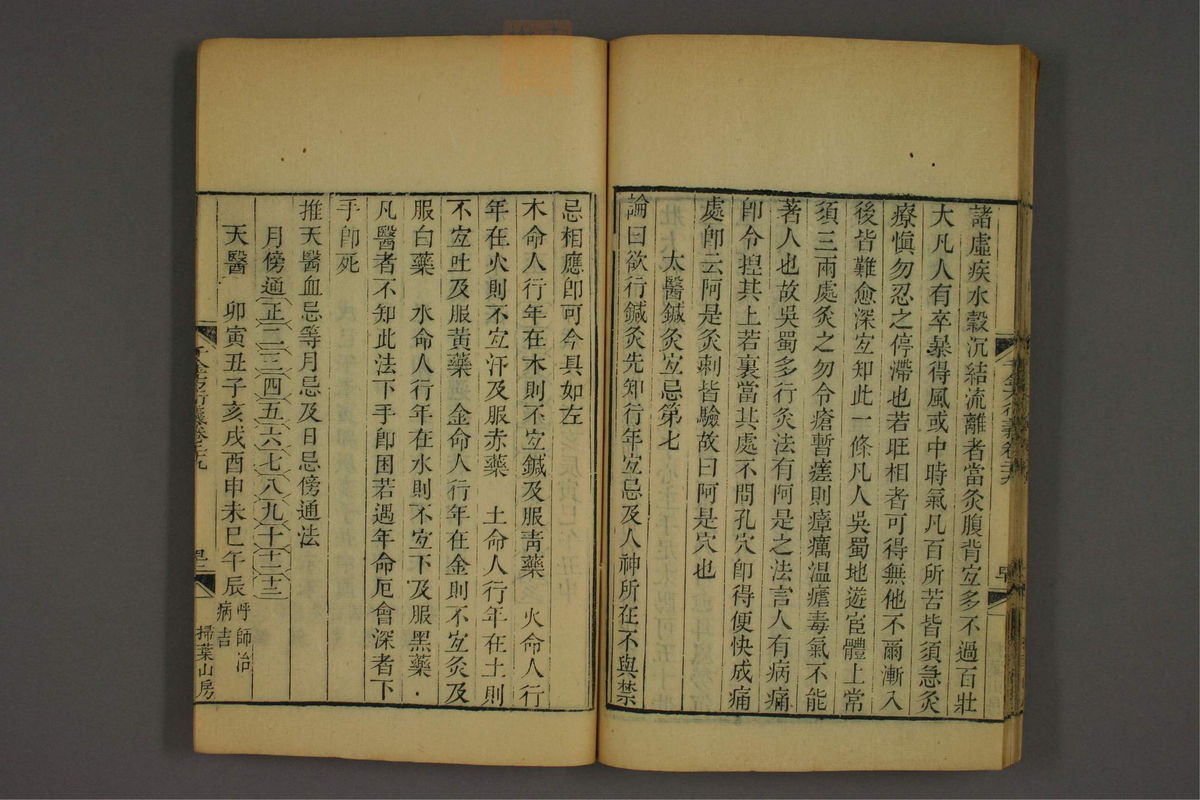 諸虛疾水穀沉結流離者當灸腹背宐多不過百壯
大凡人有卒暴得風或中時氣凡百所苦皆須急灸
療愼勿忍之停滯也若旺相者可得無他不爾漸入
後皆難愈深宐知此一條凡人吳蜀地遊宦體上常
須三兩處灸之勿令瘡暫瘥則瘴癘温瘧毒氣不能
著人也故吳蜀多行灸法有阿是之法言人有病痛
卽令揑其上若裏當其處不問孔穴卽得便快成痛
處卽云阿是灸刺皆驗故曰阿是穴也
太醫鍼灸宐忌第七
論曰欲行鍼灸先知行年宐忌及人神所在不與禁
忌相應卽可今具如左
木命人行年在木則不宐鍼及服靑藥 火命人行
年在火則不宐汗及服赤藥 土命人行年在土則
不宐吐及服黃藥 金命人行年在金則不宐灸及
服白藥 水命人行年在水則不宐下及服黑藥
凡醫者不知此法下手卽困若遇年命厄會深者下
手卽死
推天醫血忌等月忌及日忌傍通法
月傍通正二三四五六七八九十十一十二
天醫 卯寅丑子亥戌酉申未巳午辰 呼師治
病吉
千金方衍義卷二十九
掃葉山房